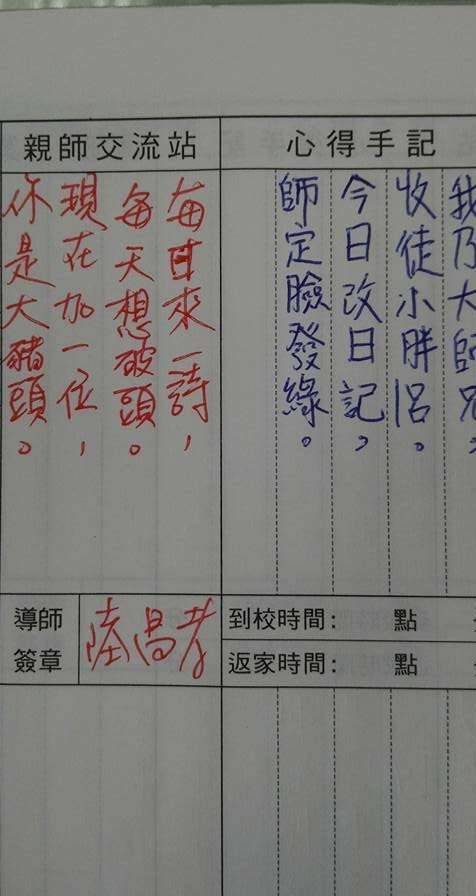 心得手記
我乃大師兄，
收徒小胖呂。
今日改日記，
師定臉發綠。
親師交流站
每日來一詩，
每天想破頭。
現在加一位，
你是大豬頭。
到校時間： 點
返家時間： 點
導師
簽章